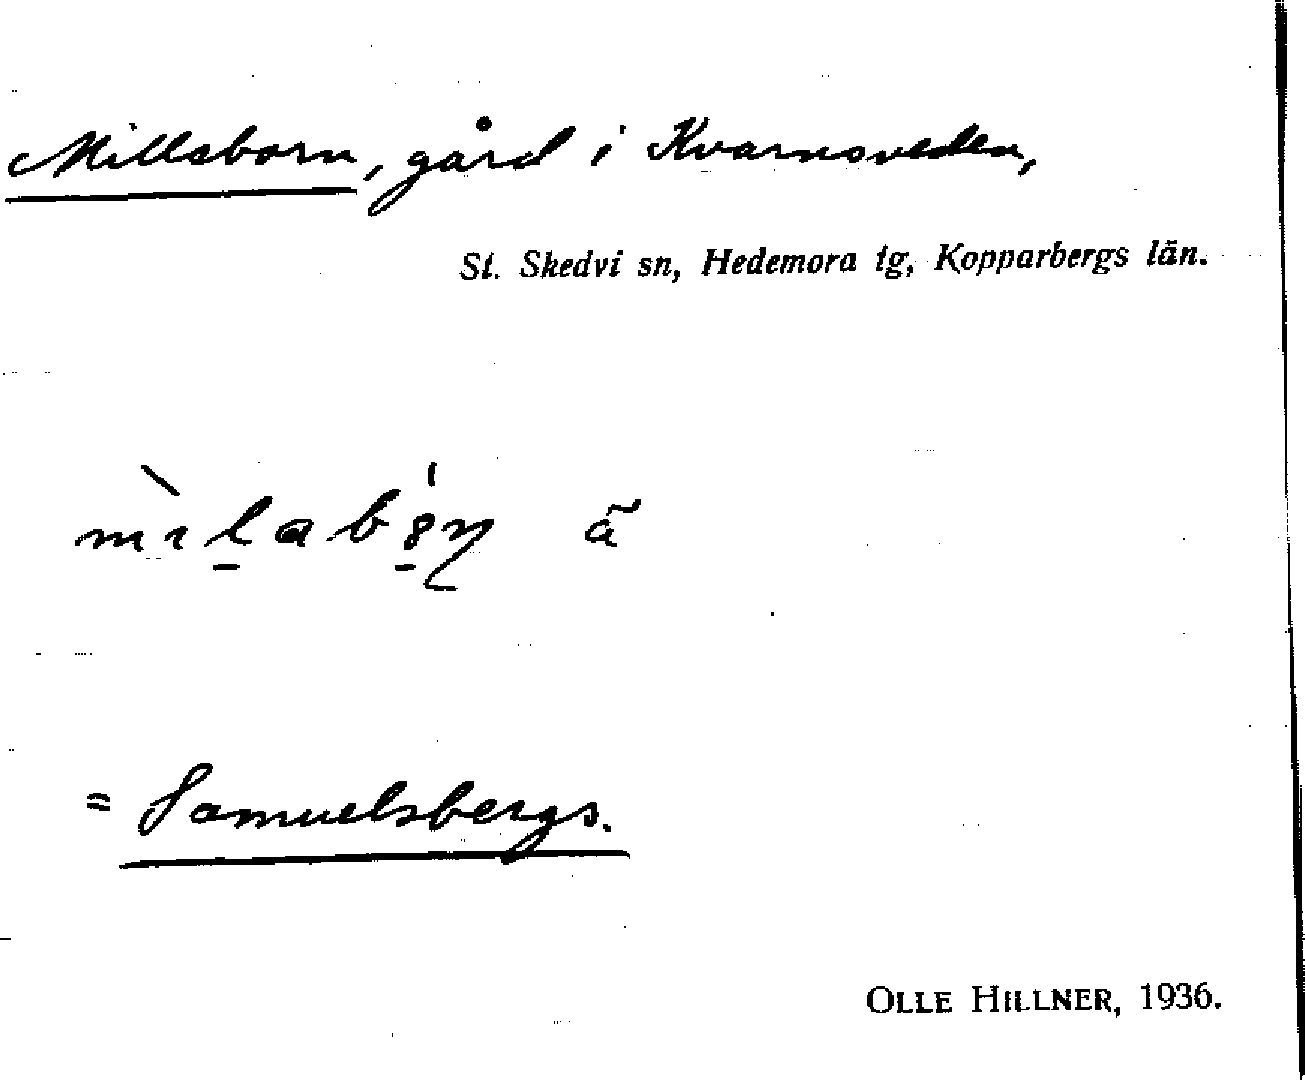 Millsborn, gård i Kvarnsveden,
St. Skedvi sn, Hedemora tg, Kopparbergs län.
= Samuelsbergs.
OLLE HILLNER, 1936.